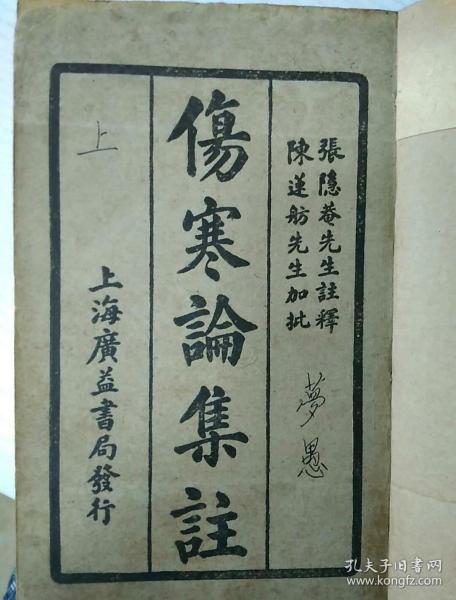 張隱菴先生註釋
陳蓮舫先生加批
夢愚
傷寒論集註
上
上海廣益書局發行
孔夫子旧书网
www.kongfz.com